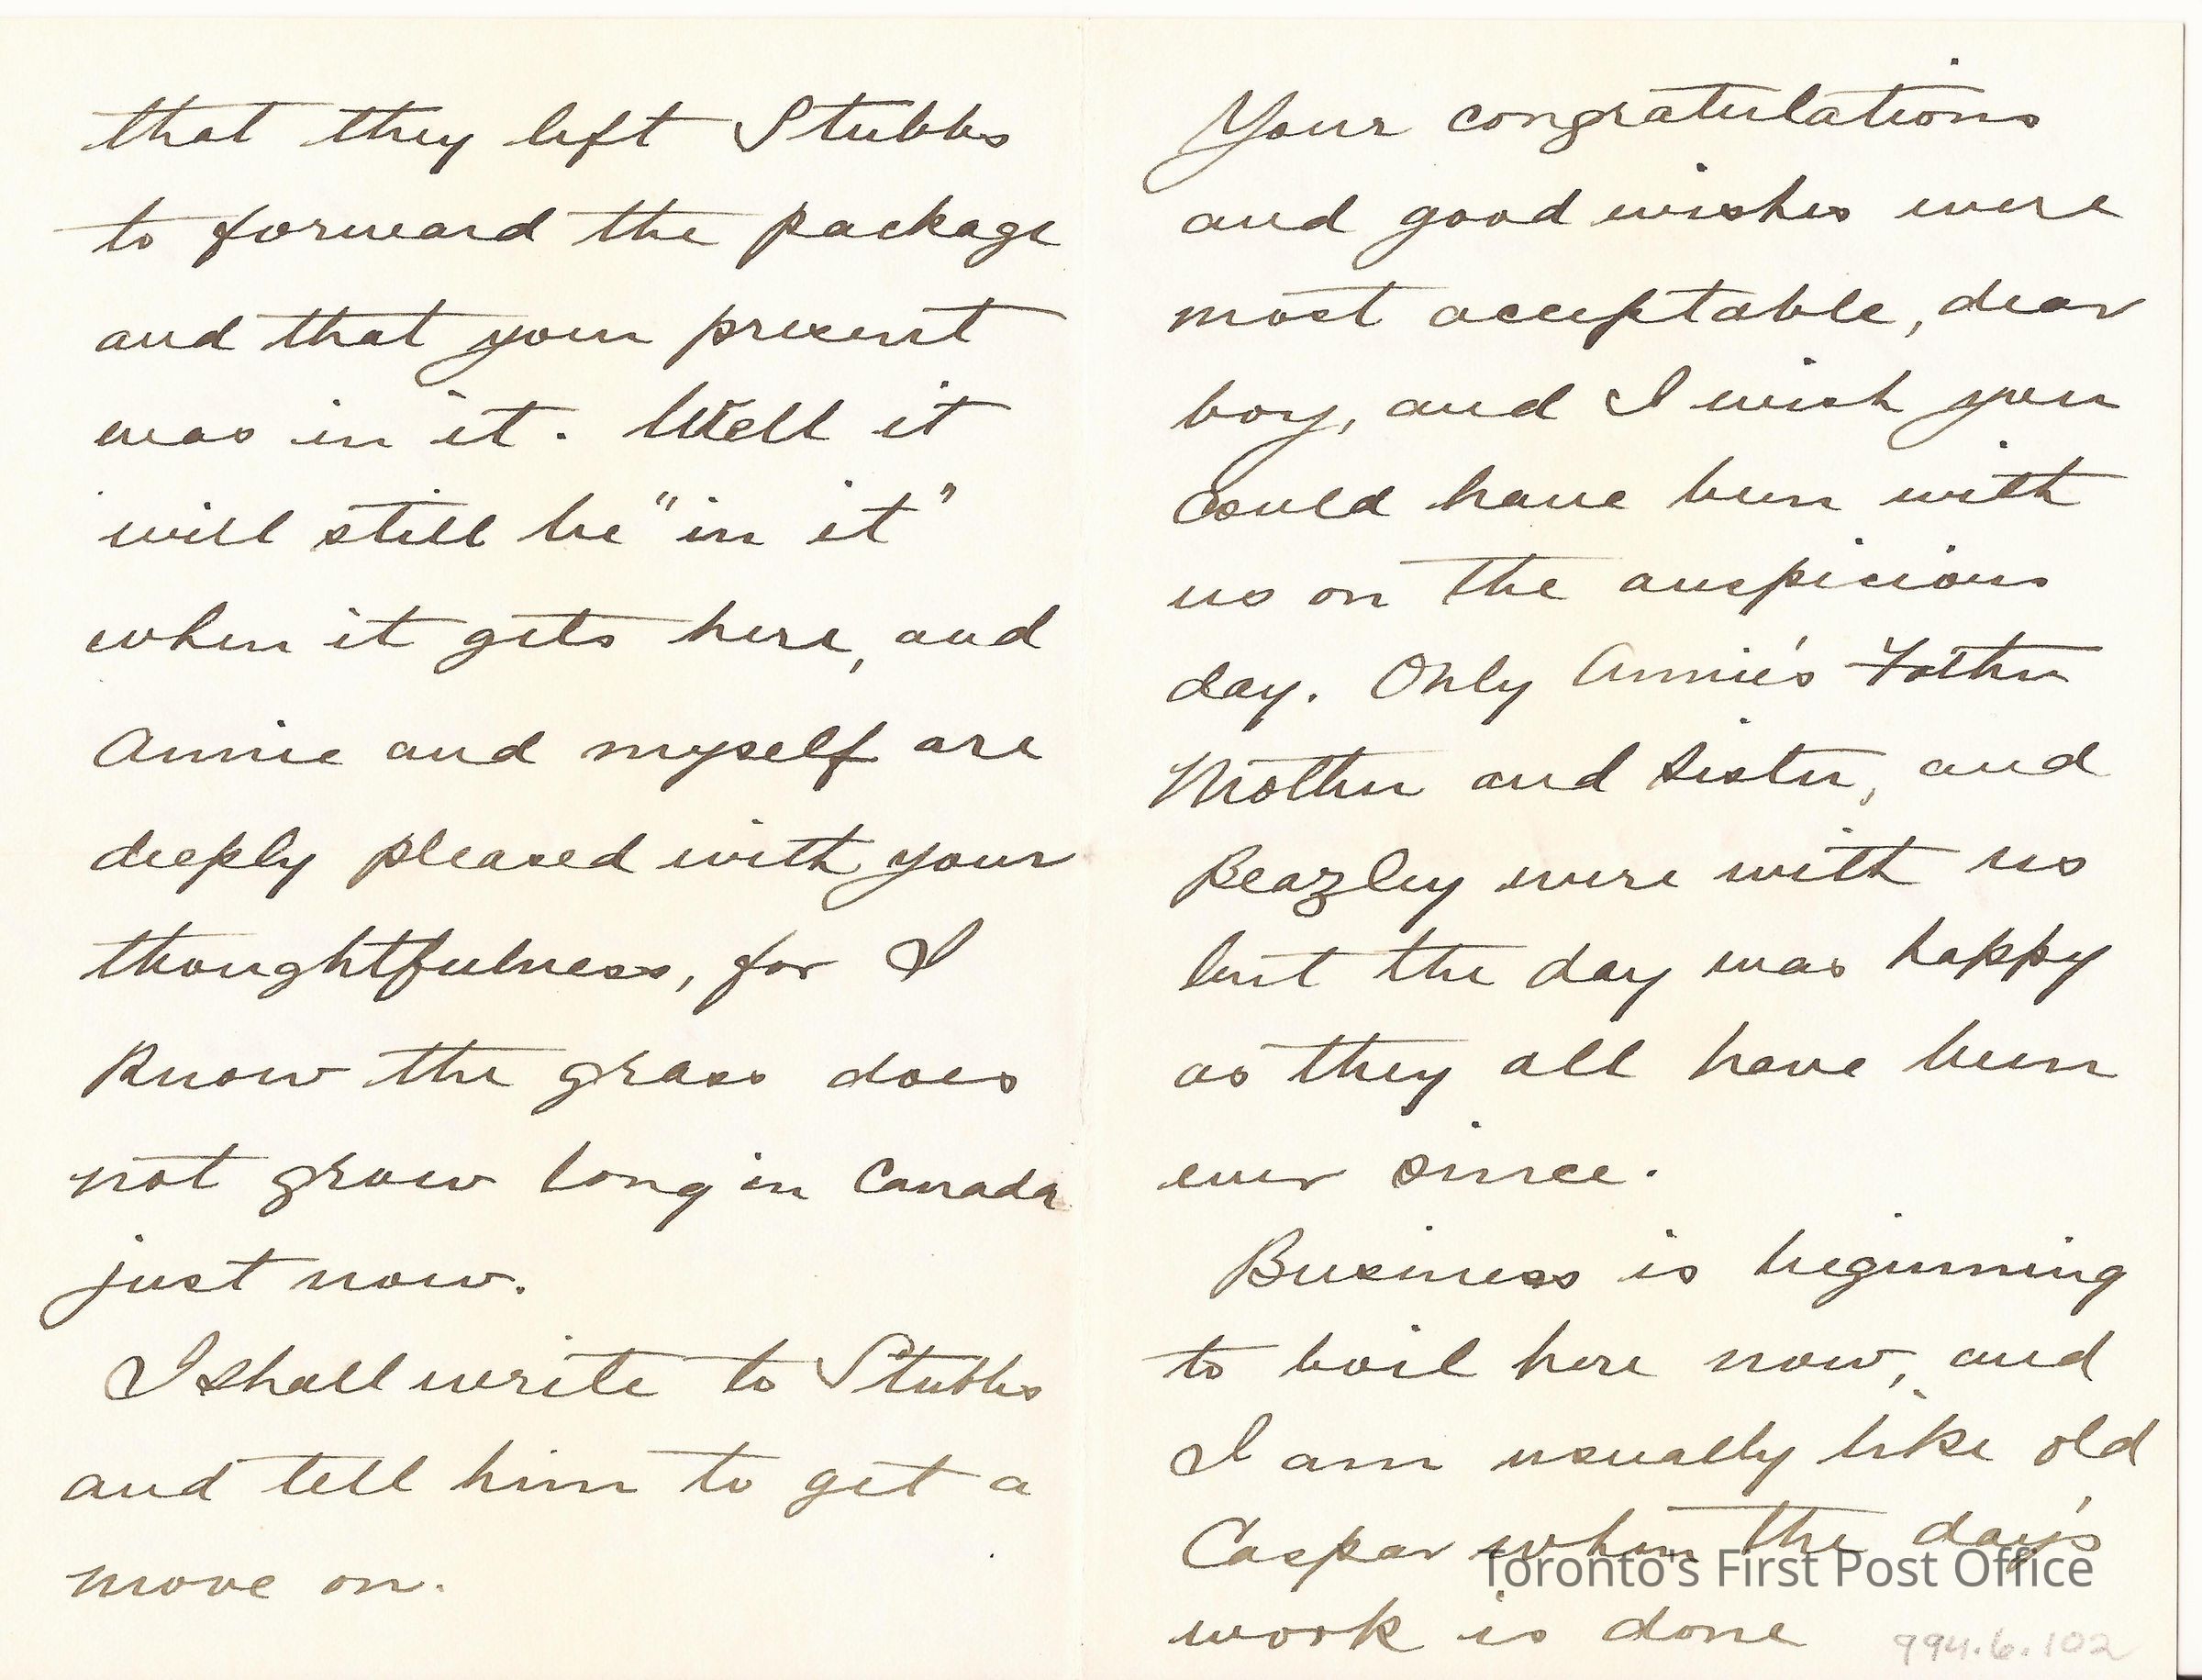 that they left Stubbs
to forward the package
and that your present
was in it. Well it
will still be "in it"
when it gets here, and
Annie and myself are
deeply pleased with your
thoughtfulness, for I
Know the grass does
not grow long in Canada
just now.
I shall write to Stubbs
and tell him to get a
move on.
Your congratulations
and good wishes were
most acceptable, dear
boy, and I wish you
could have been with
us on the auspicious
day. Only Annie's Father
Mother and Sister, and
Beazley were with us
but the day was happy
as they all have been
ever since.
Business is beginning
to boil here now, and
I am usually like old
Caspar when the day's
work is done
Toronto's First Post Office
994.6.102